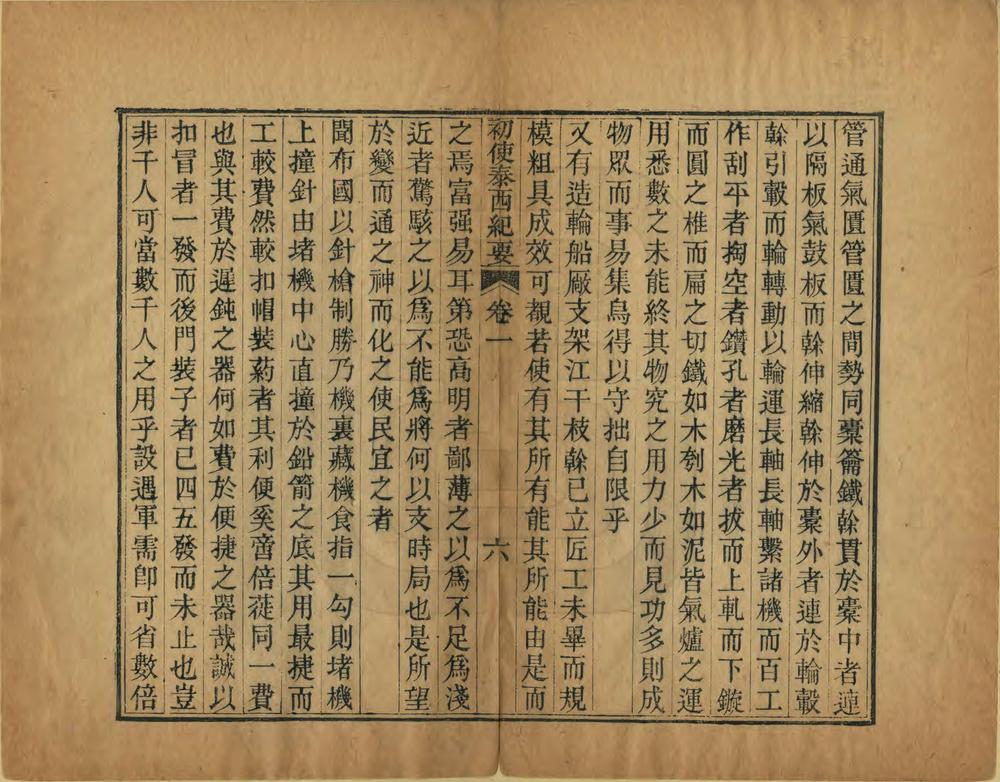 管通氣匱管匱之間勢同橐籥鐵榦貫於橐中者連
以隔板氣鼓板而榦伸縮榦伸於橐外者連於輪轂
榦引轂而輪轉動以輪運長軸長軸繫諸機而百工
作刮平者掏空者鑽孔者磨光者拔而上軋而下鏇
而圓之椎而扁之切鐵如木刳木如泥皆氣爐之運
用悉數之未能終其物究之用力少而見功多則成
物眾而事易集烏得以守拙自限乎
又有造輪船厰支架江干枝榦已立匠工未畢而規
模粗具成效可覩若使有其所有能其所能由是而
初使泰西紀要 卷一 六
之焉富强易耳第恐高明者鄙薄之以爲不足爲淺
近者驚駭之以爲不能爲將何以支時局也是所望
於變而通之神而化之使民宜之者
聞布國以針槍制勝乃機裏藏機食指一勾則堵機
上撞針由堵機中心直撞於鉛箭之底其用最捷而
工較費然較扣帽裝葯者其利便奚啻倍蓰同一費
也與其費於遲鈍之器何如費於便捷之器哉誠以
扣冒者一發而後門裝子者已四五發而未止也豈
非千人可當數千人之用乎設遇軍需卽可省數倍